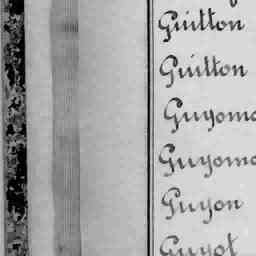 Guitton
Guitton
Guyoma
Guyoma
Guyon
Guyot